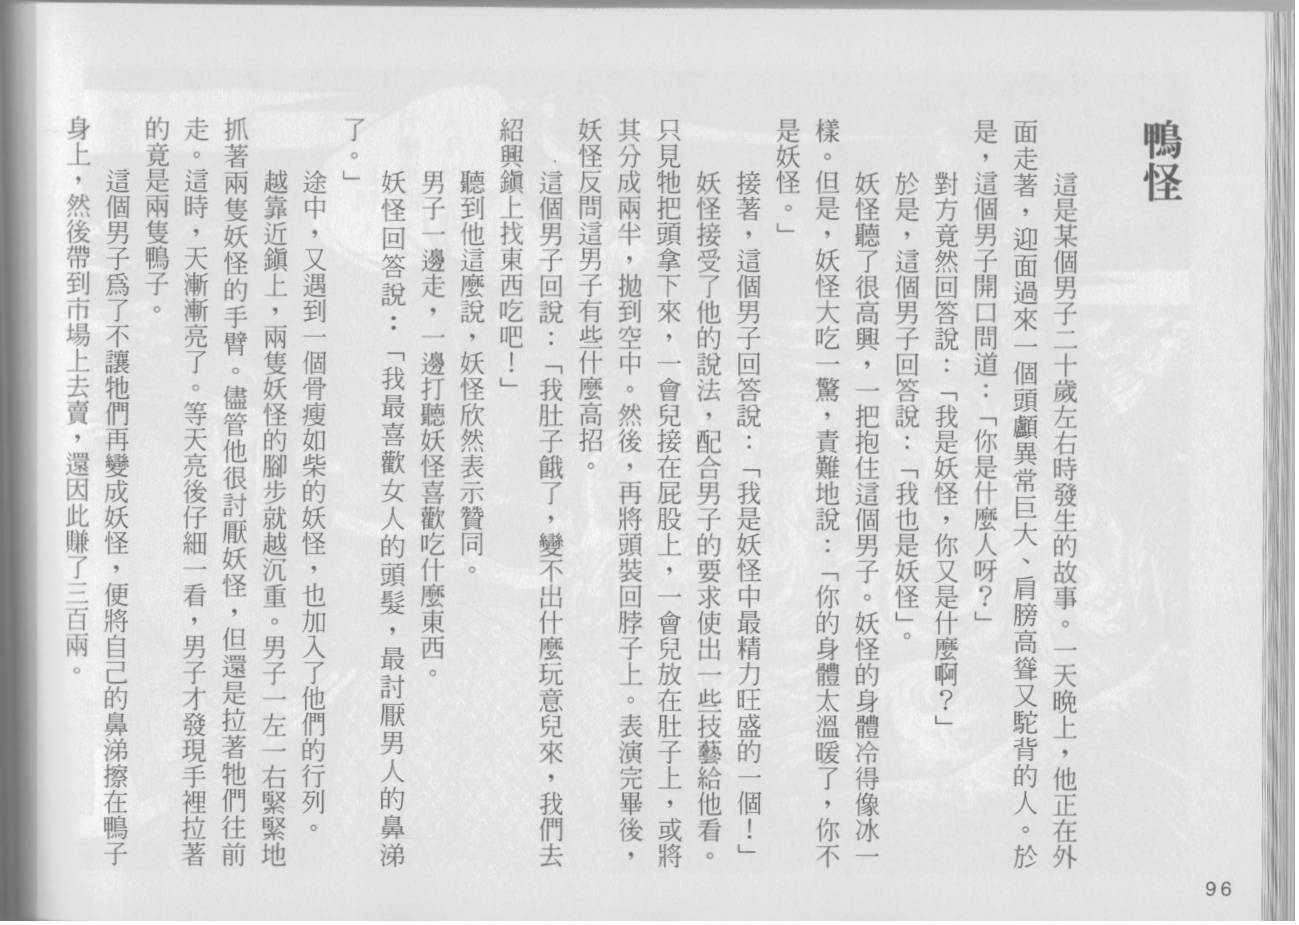 鴨怪
這是某個男子二十歲左右時發生的故事。一天晚上，他正在外
面走著，迎面過來一個頭顱異常巨大、肩膀高聳又駝背的人。於
是，這個男子開口問道：「你是什麼人呀？」
對方竟然回答說：「我是妖怪，你又是什麼啊？」
於是，這個男子回答說：「我也是妖怪」。
妖怪聽了很高興，一把抱住這個男子。妖怪的身體冷得像冰一
樣。但是，妖怪大吃一驚，責難地說：「你的身體太溫暖了，你不
是妖怪。」
接著，這個男子回答說：「我是妖怪中最精力旺盛的一個！」
妖怪接受了他的說法，配合男子的要求使出一些技藝給他看。
只見牠把頭拿下來，一會兒接在屁股上，一會兒放在肚子上，或將
其分成兩半，拋到空中。然後，再將頭裝回脖子上。表演完畢後，
妖怪反問這男子有些什麼高招。
這個男子回說：「我肚子餓了，變不出什麼玩意兒來，我們去
紹興鎭上找東西吃吧！」
聽到他這麼說，妖怪欣然表示贊同。
男子一邊走，一邊打聽妖怪喜歡吃什麼東西。
妖怪回答說：「我最喜歡女人的頭髮，最討厭男人的鼻涕
了。」
途中，又遇到一個骨瘦如柴的妖怪，也加入了他們的行列。
越靠近鎭上，兩隻妖怪的腳步就越沉重。男子一左一右緊緊地
抓著兩隻妖怪的手臂。儘管他很討厭妖怪，但還是拉著牠們往前
走。這時，天漸漸亮了。等天亮後仔細一看，男子才發現手裡拉著
的竟是兩隻鴨子。
這個男子爲了不讓牠們再變成妖怪，便將自己的鼻涕擦在鴨子
身上，然後帶到市場上去賣，還因此賺了三百兩。
96